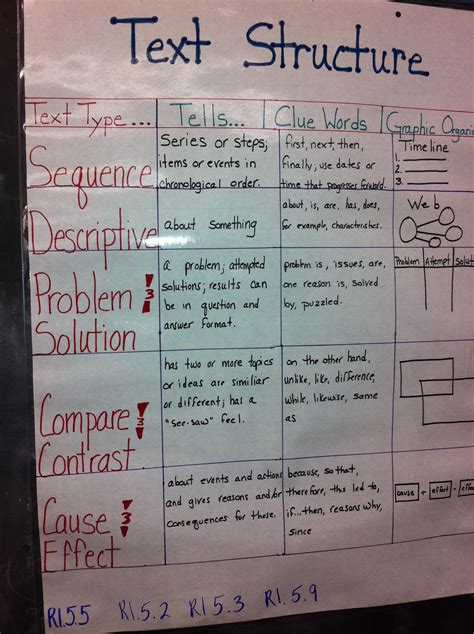 Text Structure
Text Type... Tells... Clue Words Graphic Organi
Sequence
Series or steps;
items or events in
chronological order.
first, next, then,
finally; use dates or
time that progresses forward.
Timeline
1.
2.
3.
Descriptive
about something
about, is, are, has, does,
for example, characteristics.
Web
Problem
3
Solution
a problem; attempted
solutions; results can
be in question and
answer format.
problem is, issues, are,
one reason is, solved
by, puzzled.
Problem Attempt Solut
Compare
3
Contrast
has two or more topics
or ideas are similiar
or different; has a
"see-saw" feel.
on the other hand,
unlike, like, difference,
while, likewise, same
as
Cause
3
Effect
about events and actions
and gives reasons and/or
consequences for these.
because, so that,
therefore, this led to,
if...then, reasons why,
since
cause + effect = effec
RI.5.5 RI.5.2 RI5.3 RI.5.9